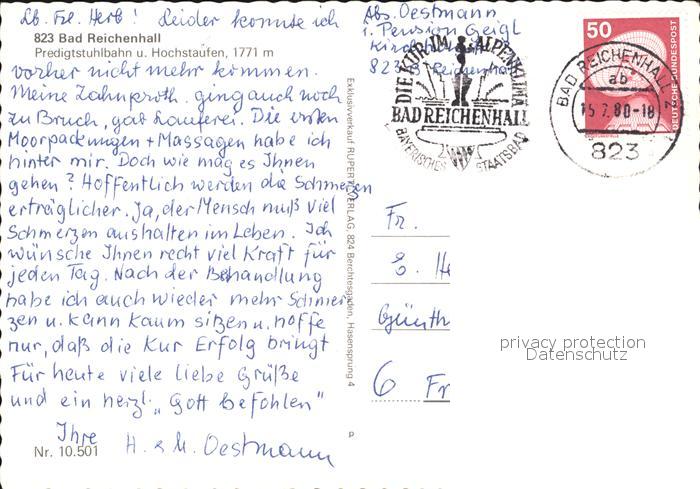 Lb. Fr. Herb! Leider konnte ich
823 Bad Reichenhall
Predigtstuhlbahn u. Hochstaufen, 1771 m
vorher nicht mehr kommen.
Meine Zahnproth. ging auch noch
zu Bruch, gab Lauferei. Die ersten
Moorpackungen + Massagen habe ich
hinter mir. Doch wie mag es Ihnen
gehen? Hoffentlich werden die Schmerzen
erträglicher. Ja, der Mensch muß viel
Schmerzen aushalten im Leben. Ich
wünsche Ihnen recht viel Kraft für
jeden Tag. Nach der Behandlung
habe ich auch wieder mehr Schmer-
zen u. kann kaum sitzen u. hoffe
nur, daß die Kur Erfolg bringt
Für heute viele liebe Grüße
und ein herzl. "Gott befohlen"
Ihre H. & M. Oestmann
Nr. 10.501
Exklusivverkauf RUPERTI-VERLAG, 824 Berchtesgaden, Hasensprung 4
P
Abs. Oestmann
i. Pension Geigl
823 Reichenhall
DIE KUR IM ALPENKLIMA
BAD REICHENHALL
BAYERISCHES STAATSBAD
50
DEUTSCHE BUNDESPOST
BAD REICHENHALL 2
ab
15.7.80-18
823
Fr.
E. He
Günth
6 Fr
privacy protection
Datenschutz